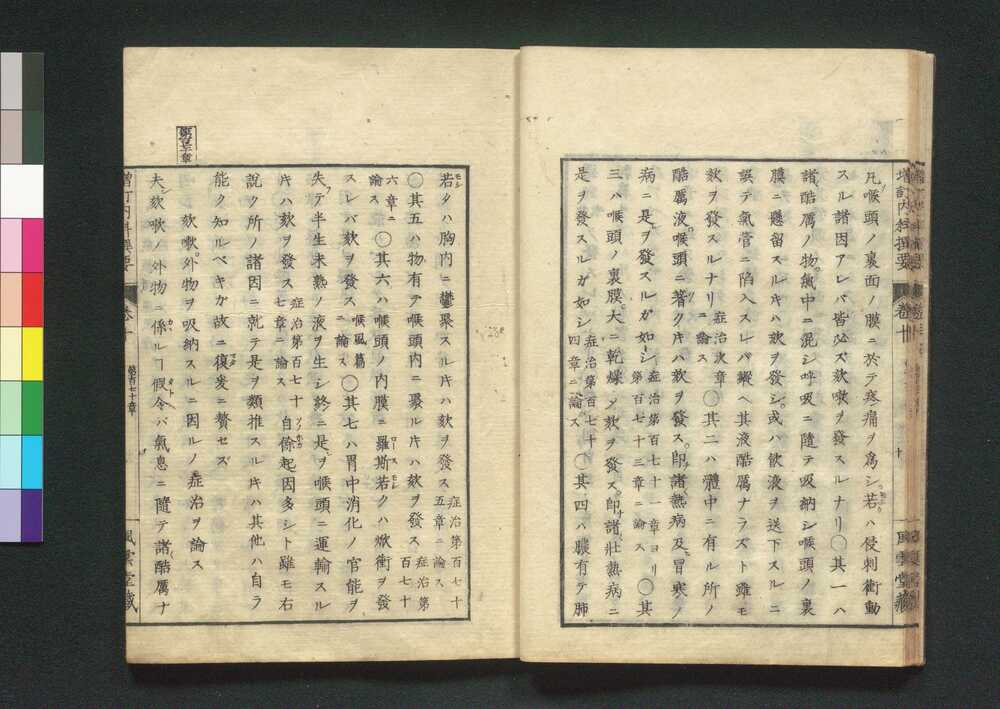 凡喉頭ノ裏面ノ膜ニ於テ疼痛ヲ爲シ若クハ侵刺衝動
スル諸因アレバ皆必ズ欬嗽ヲ發スルナリ○其一ハ
諸酷厲ノ物氣中ニ混シ呼吸ニ隨テ吸納シ喉頭ノ裏
膜ニ懸留スルキハ欬ヲ發シ或ハ飲液ヲ送下スルニ
誤テ氣管ニ陷入スレバ縱ヘ其液酷厲ナラズト雖モ
欬ヲ發スルナリ症治次章ニ論ス○其二ハ體中ニ有ル所ノ
酷厲液喉頭ニ著クキハ欬ヲ發ス即諸熱病及ヒ冒寒ノ
病ニ是ヲ發スルガ如シ症治第百七十一章ヨリ第百七十三章ニ論ス○其
三ハ喉頭ノ裏膜大ニ乾燥シ欬ヲ發ス即諸壯熱病ニ
是ヲ發スルガ如シ症治第百七十四章ニ論ス○其四ハ膿有テ肺
若クハ胸内ニ鬱聚スルキハ欬ヲ發ス症治第百七十五章ニ論ス
○其五ハ物有テ喉頭内ニ聚ルキハ欬ヲ發ス症治第百七十
六章ニ論ス○其六ハ喉頭ノ内膜ニ羅斯若クハ焮衝ヲ發
スレバ欬ヲ發ス喉風篇ニ論ス○其七ハ胃中消化ノ官能ヲ
失テ半生未熟ノ液ヲ生シ終ニ是ヲ喉頭ニ運輸スル
キハ欬ヲ發ス症治第百七十七章ニ論ス自餘起因多シト雖モ右
説ク所ノ諸因ニ就テ是ヲ類推スルキハ其他ハ自ラ
能ク知ルベキガ故ニ復爰ニ贅セズ
欬嗽外物ヲ吸納スルニ因ルノ症治ヲ論ス
夫欬嗽ノ外物ニ係ルヿ假令バ氣息ニ隨テ諸酷厲ナ
第百七十章
風雲堂藏